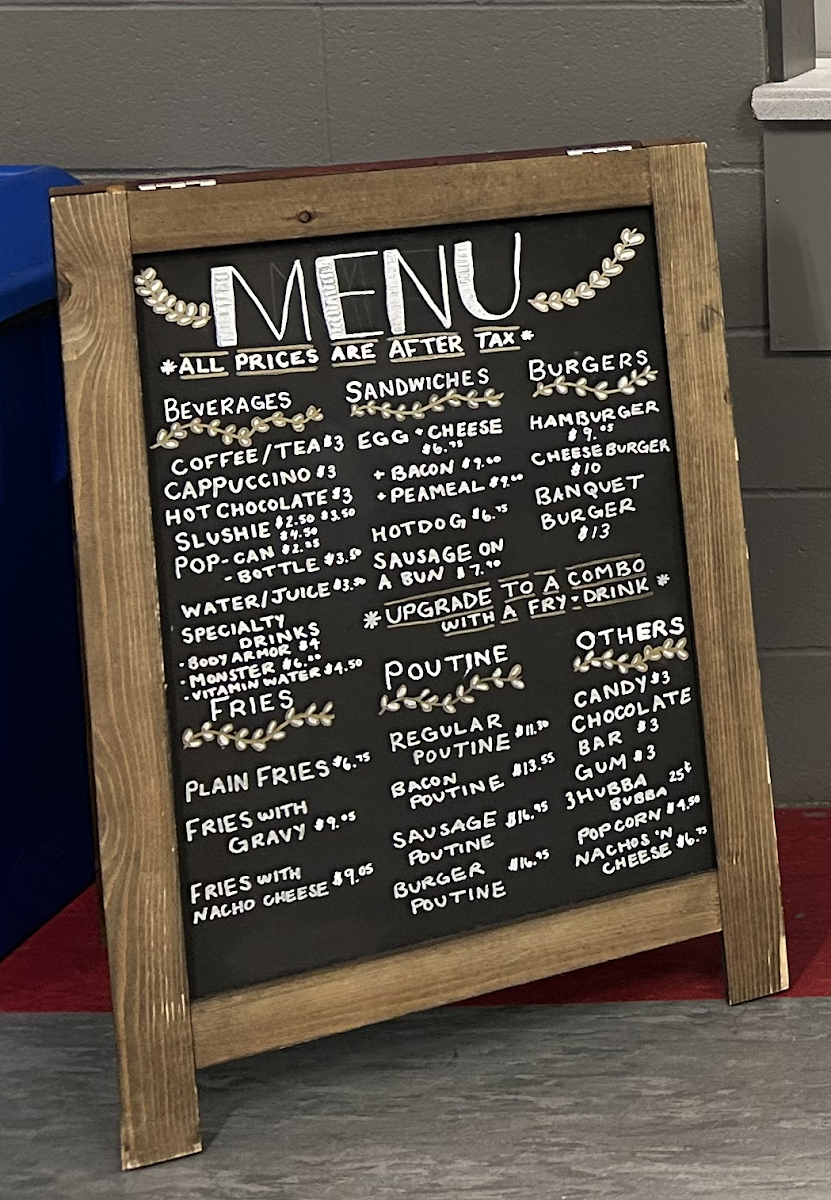 MENU
*ALL PRICES ARE AFTER TAX*
BEVERAGES
COFFEE/TEA $3
CAPPUCCINO $3
HOT CHOCOLATE $3
SLUSHIE $2.50 $3.50
$4.50
POP-CAN $2.25
- BOTTLE $3.50
WATER/JUICE $3.50
SPECIALTY
DRINKS
• BODY ARMOR $4
• MONSTER $6.00
• VITAMIN WATER $4.50
FRIES
PLAIN FRIES $6.75
FRIES WITH
GRAVY $9.05
FRIES WITH
NACHO CHEESE $9.05
SANDWICHES
EGG + CHEESE
$6.75
+ BACON $9.00
+ PEAMEAL $9.00
HOTDOG $6.75
SAUSAGE ON
A BUN $7.90
BURGERS
HAMBURGER
$9.05
CHEESEBURGER
$10
BANQUET
BURGER
$13
*UPGRADE TO A COMBO
WITH A FRY + DRINK*
POUTINE
REGULAR
POUTINE $11.30
BACON
POUTINE $13.55
SAUSAGE $16.95
POUTINE
BURGER $16.95
POUTINE
OTHERS
CANDY $3
CHOCOLATE
BAR $3
GUM $3
3 HUBBA 25¢
BUBBA
POPCORN $4.50
NACHOS 'N
CHEESE $6.75